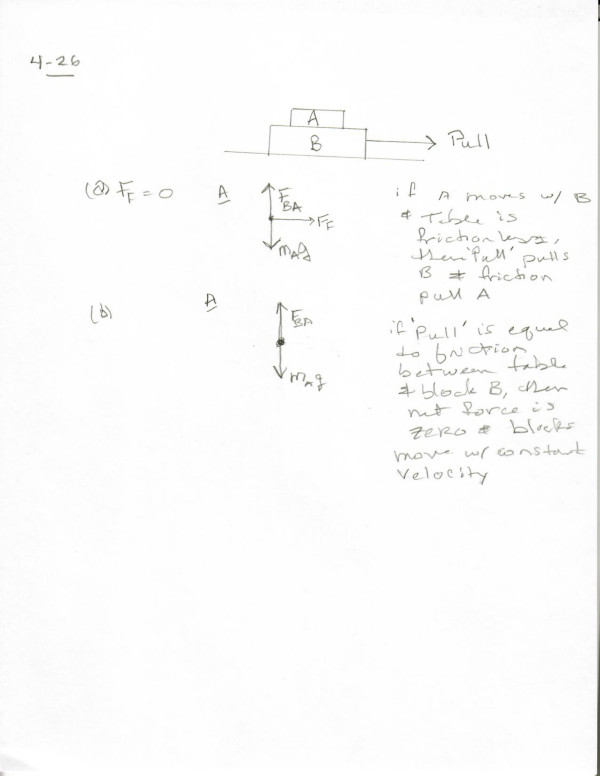 4-26
A
B
Pull
(a) F_F = 0
A
F_BA
F_F
m_A g
if A moves w/ B
& Table is
frictionless,
then 'Pull' pulls
B & friction
pull A
(b)
A
F_BA
m_A g
if 'Pull' is equal
to friction
between table
& block B, then
net force is
ZERO & blocks
move w/ constant
velocity